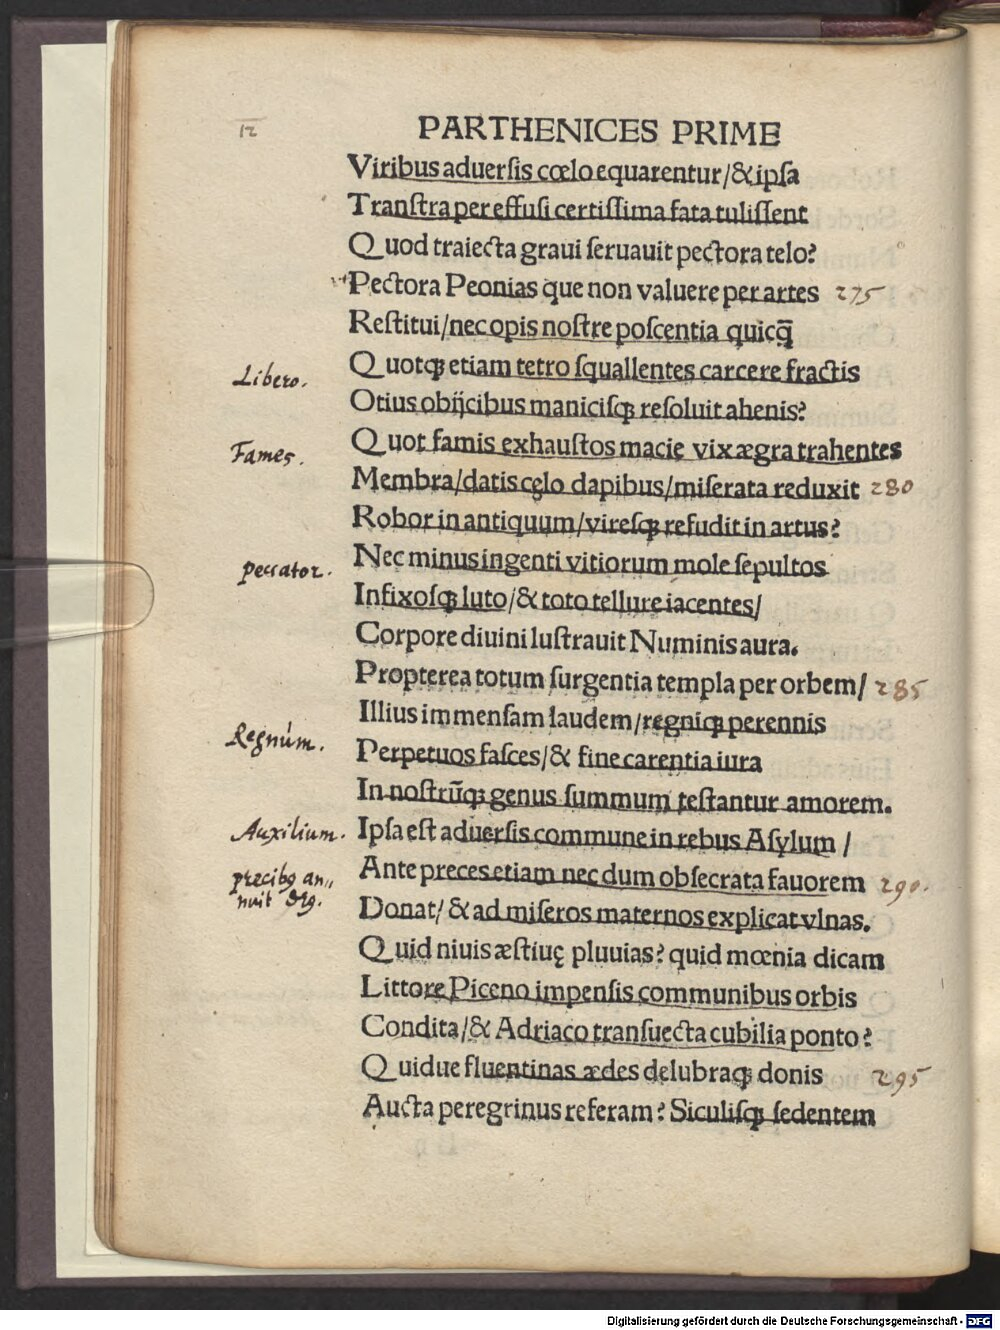 12
PARTHENICES PRIME
Viribus aduerſis cœlo equarentur/&ipſa
Tranſtra per effuſi certiſſima fata tuliſſent
Quod traiecta graui ſeruauit pectora telo?
Pectora Peonias que non valuere per artes 275
Reſtitui/nec opis noſtre poſcentia quicq̄
Libero. Quotqꝫ etiam tetro ſquallentes carcere fractis
Otius obijcibus maniciſqꝫ reſoluit ahenis?
Fames. Quot famis exhauſtos macie vix ægra trahentes
Membra/datis cęlo dapibus/miſerata reduxit 280
Robor in antiquum/vireſqꝫ refudit in artus?
peccator. Nec minus ingenti vitiorum mole ſepultos
Infixoſqꝫ luto/& toto tellure iacentes/
Corpore diuini luſtrauit Numinis aura.
Propterea totum ſurgentia templa per orbem/ 285
Illius immenſam laudem/regniqꝫ perennis
Regnúm. Perpetuos faſces/& fine carentia iura
In noſtrūqꝫ genus ſummum teſtantur amorem.
Auxilium. Ipſa eſt aduerſis commune in rebus Aſylum /
precibꝫ an,, Ante preces etiam nec dum obſecrata fauorem 290.
nuit Donat/ & ad miſeros maternos explicat vlnas.
Quid niuis æſtiuę pluuias? quid mœnia dicam
Littore Piceno impenſis communibus orbis
Condita/& Adriaco tranſuecta cubilia ponto?
Quidue fluentinas ædes delubraqꝫ donis 295
Aucta peregrinus referam? Siculiſqꝫ ſedentem
Digitalisierung gefördert durch die Deutsche Forschungsgemeinschaft - DFG